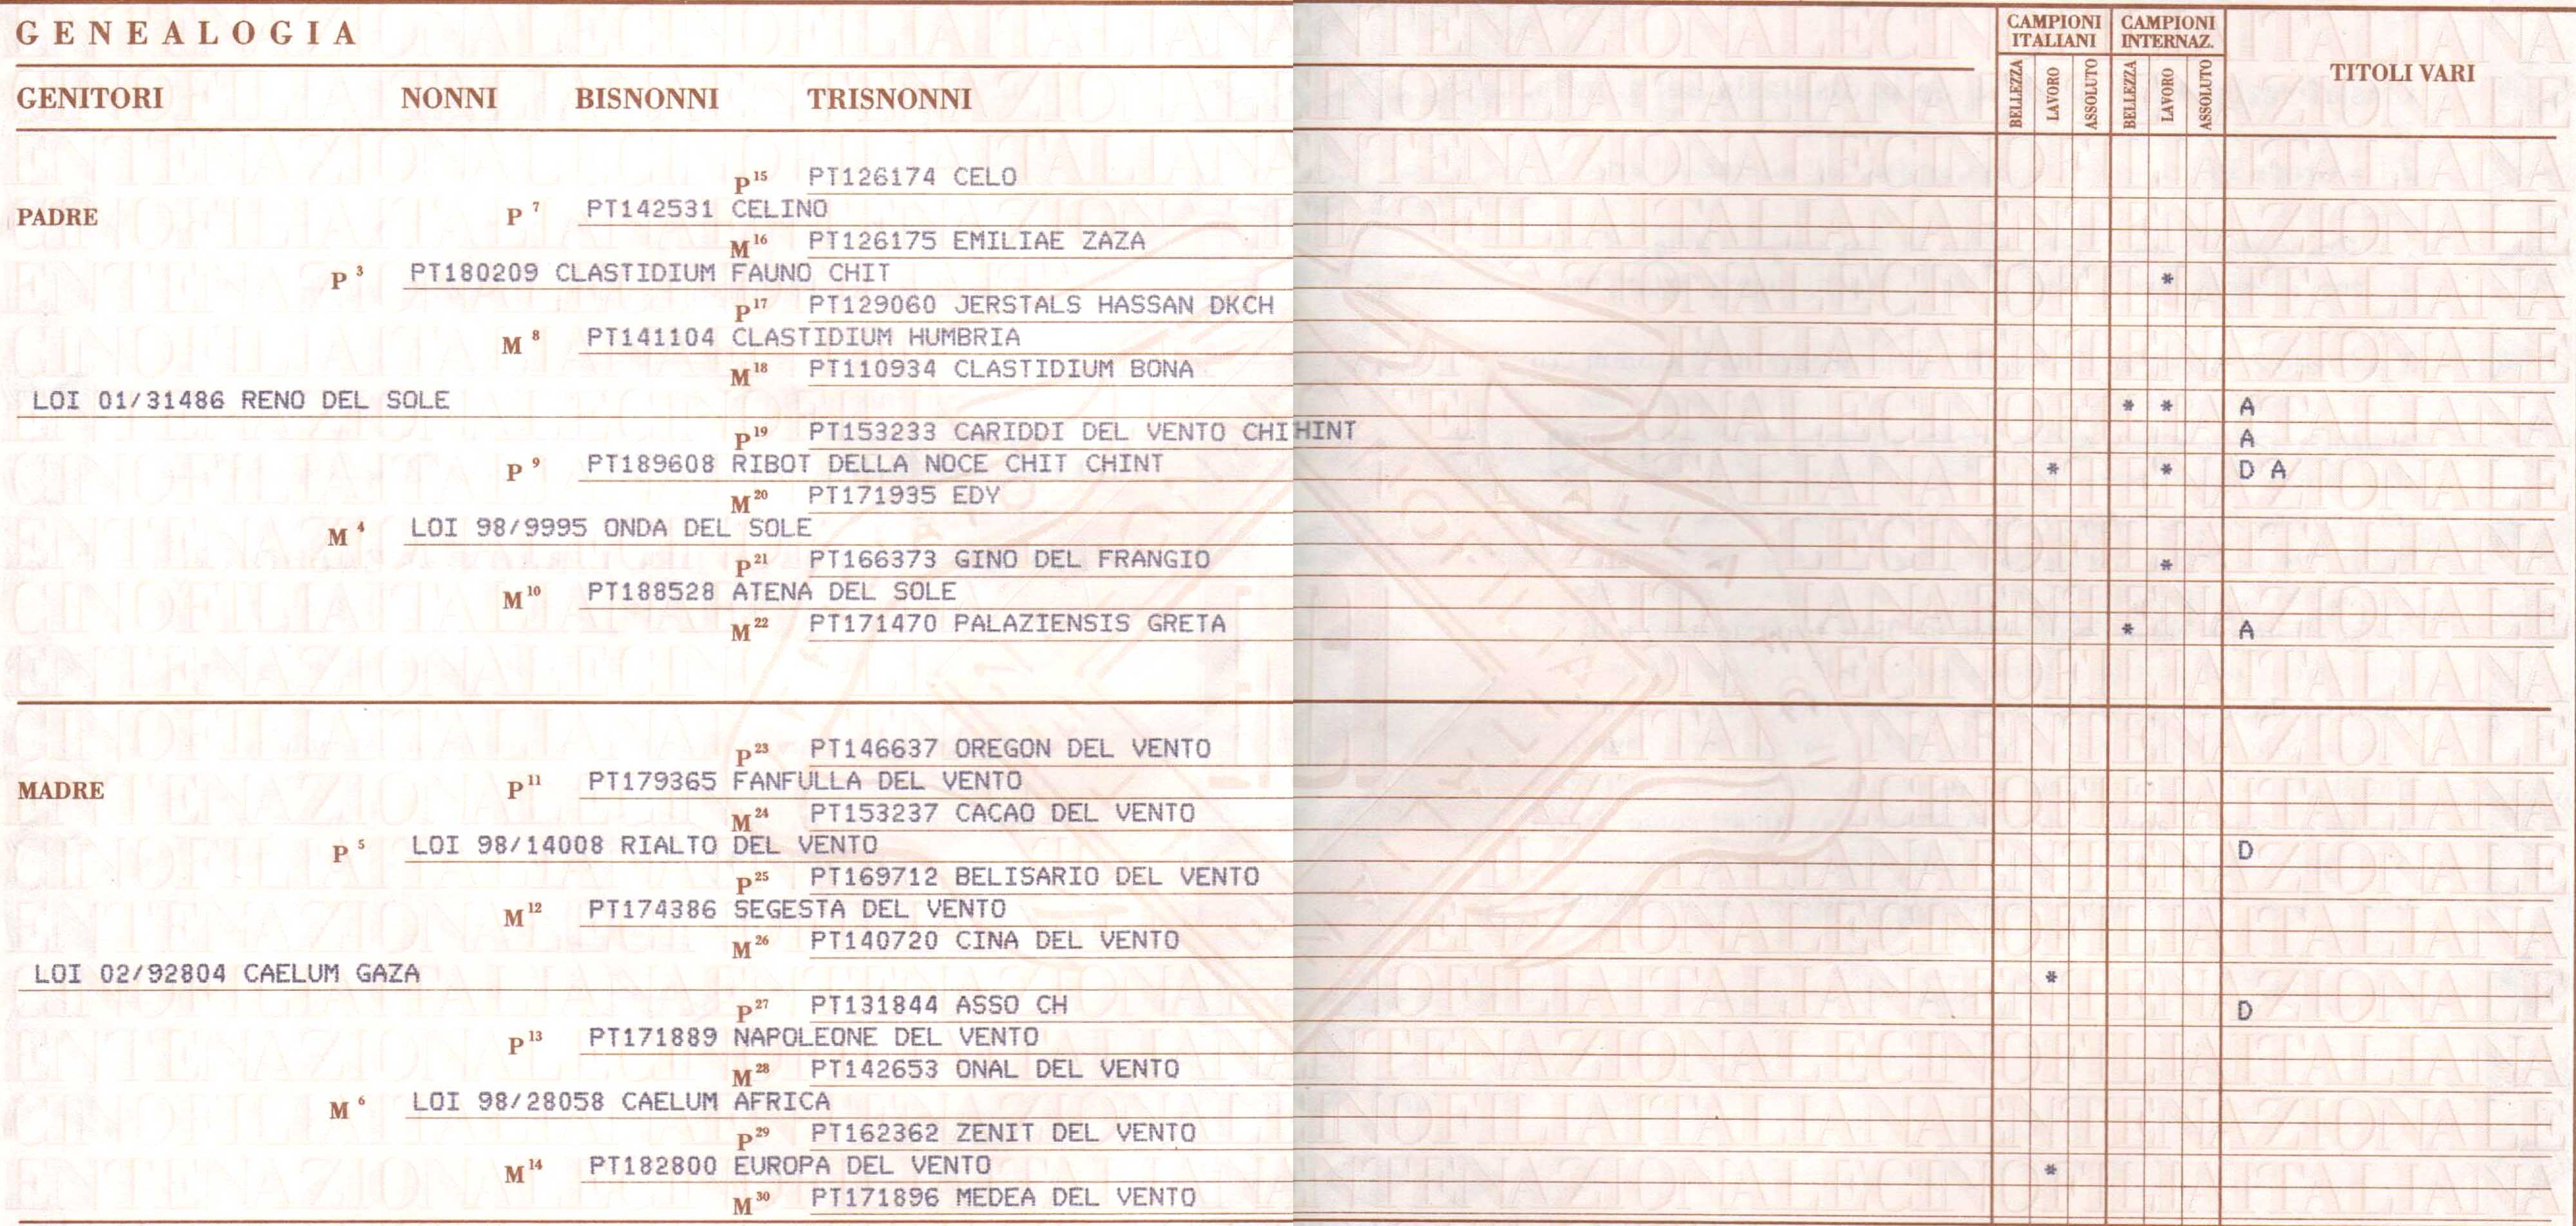 GENEALOGIA
CAMPIONI ITALIANI CAMPIONI INTERNAZ.
BELLEZZA LAVORO ASSOLUTO BELLEZZA LAVORO ASSOLUTO TITOLI VARI
GENITORI NONNI BISNONNI TRISNONNI
P 15 PT126174 CELO
PADRE P 7 PT142531 CELINO
M 16 PT126175 EMILIAE ZAZA
P 3 PT180209 CLASTIDIUM FAUNO CHIT *
P 17 PT129060 JERSTALS HASSAN DKCH
M 8 PT141104 CLASTIDIUM HUMBRIA
M 18 PT110934 CLASTIDIUM BONA
LOI 01/31486 RENO DEL SOLE * * A
P 19 PT153233 CARIDDI DEL VENTO CHIHINT A
P 9 PT189608 RIBOT DELLA NOCE CHIT CHINT * * D A
M 20 PT171935 EDY
M 4 LOI 98/9995 ONDA DEL SOLE
P 21 PT166373 GINO DEL FRANGIO *
M 10 PT188528 ATENA DEL SOLE
M 22 PT171470 PALAZIENSIS GRETA * A
P 23 PT146637 OREGON DEL VENTO
MADRE P 11 PT179365 FANFULLA DEL VENTO
M 24 PT153237 CACAO DEL VENTO
P 5 LOI 98/14008 RIALTO DEL VENTO D
P 25 PT169712 BELISARIO DEL VENTO
M 12 PT174386 SEGESTA DEL VENTO
M 26 PT140720 CINA DEL VENTO
LOI 02/92804 CAELUM GAZA *
P 27 PT131844 ASSO CH D
P 13 PT171889 NAPOLEONE DEL VENTO
M 28 PT142653 ONAL DEL VENTO
M 6 LOI 98/28058 CAELUM AFRICA
P 29 PT162362 ZENIT DEL VENTO
M 14 PT182800 EUROPA DEL VENTO *
M 30 PT171896 MEDEA DEL VENTO